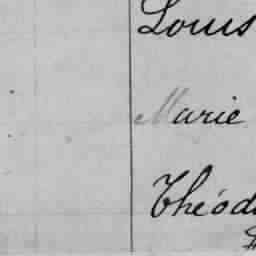 Louis
Marie
Théod